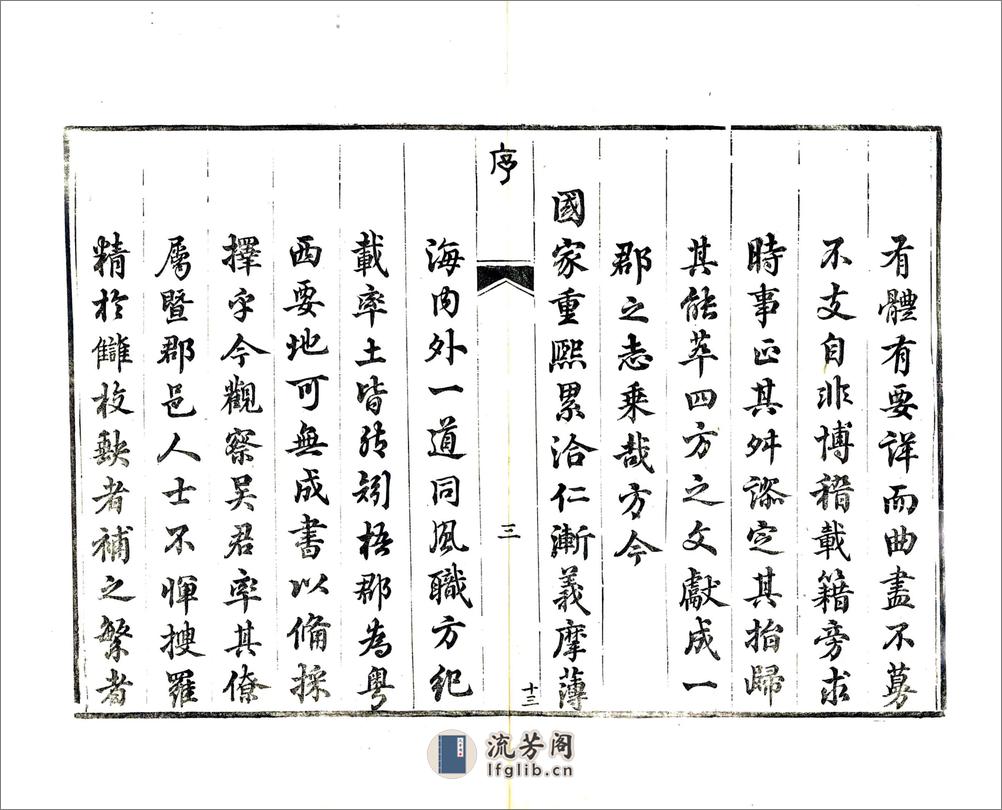 有體有要詳而曲盡不蔓
不支自非博稽載籍旁求
時事正其舛謬定其指歸
其能萃四方之文獻成一
郡之志乘哉方今
國家重熙累洽仁漸義摩薄
序
三
十三
海內外一道同風職方紀
載率土皆然矧梧郡為粵
西要地可無成書以備採
擇乎今觀察吳君率其僚
屬暨郡邑人士不憚搜羅
精於讎校缺者補之繁者
流芳阁
lfglib.cn